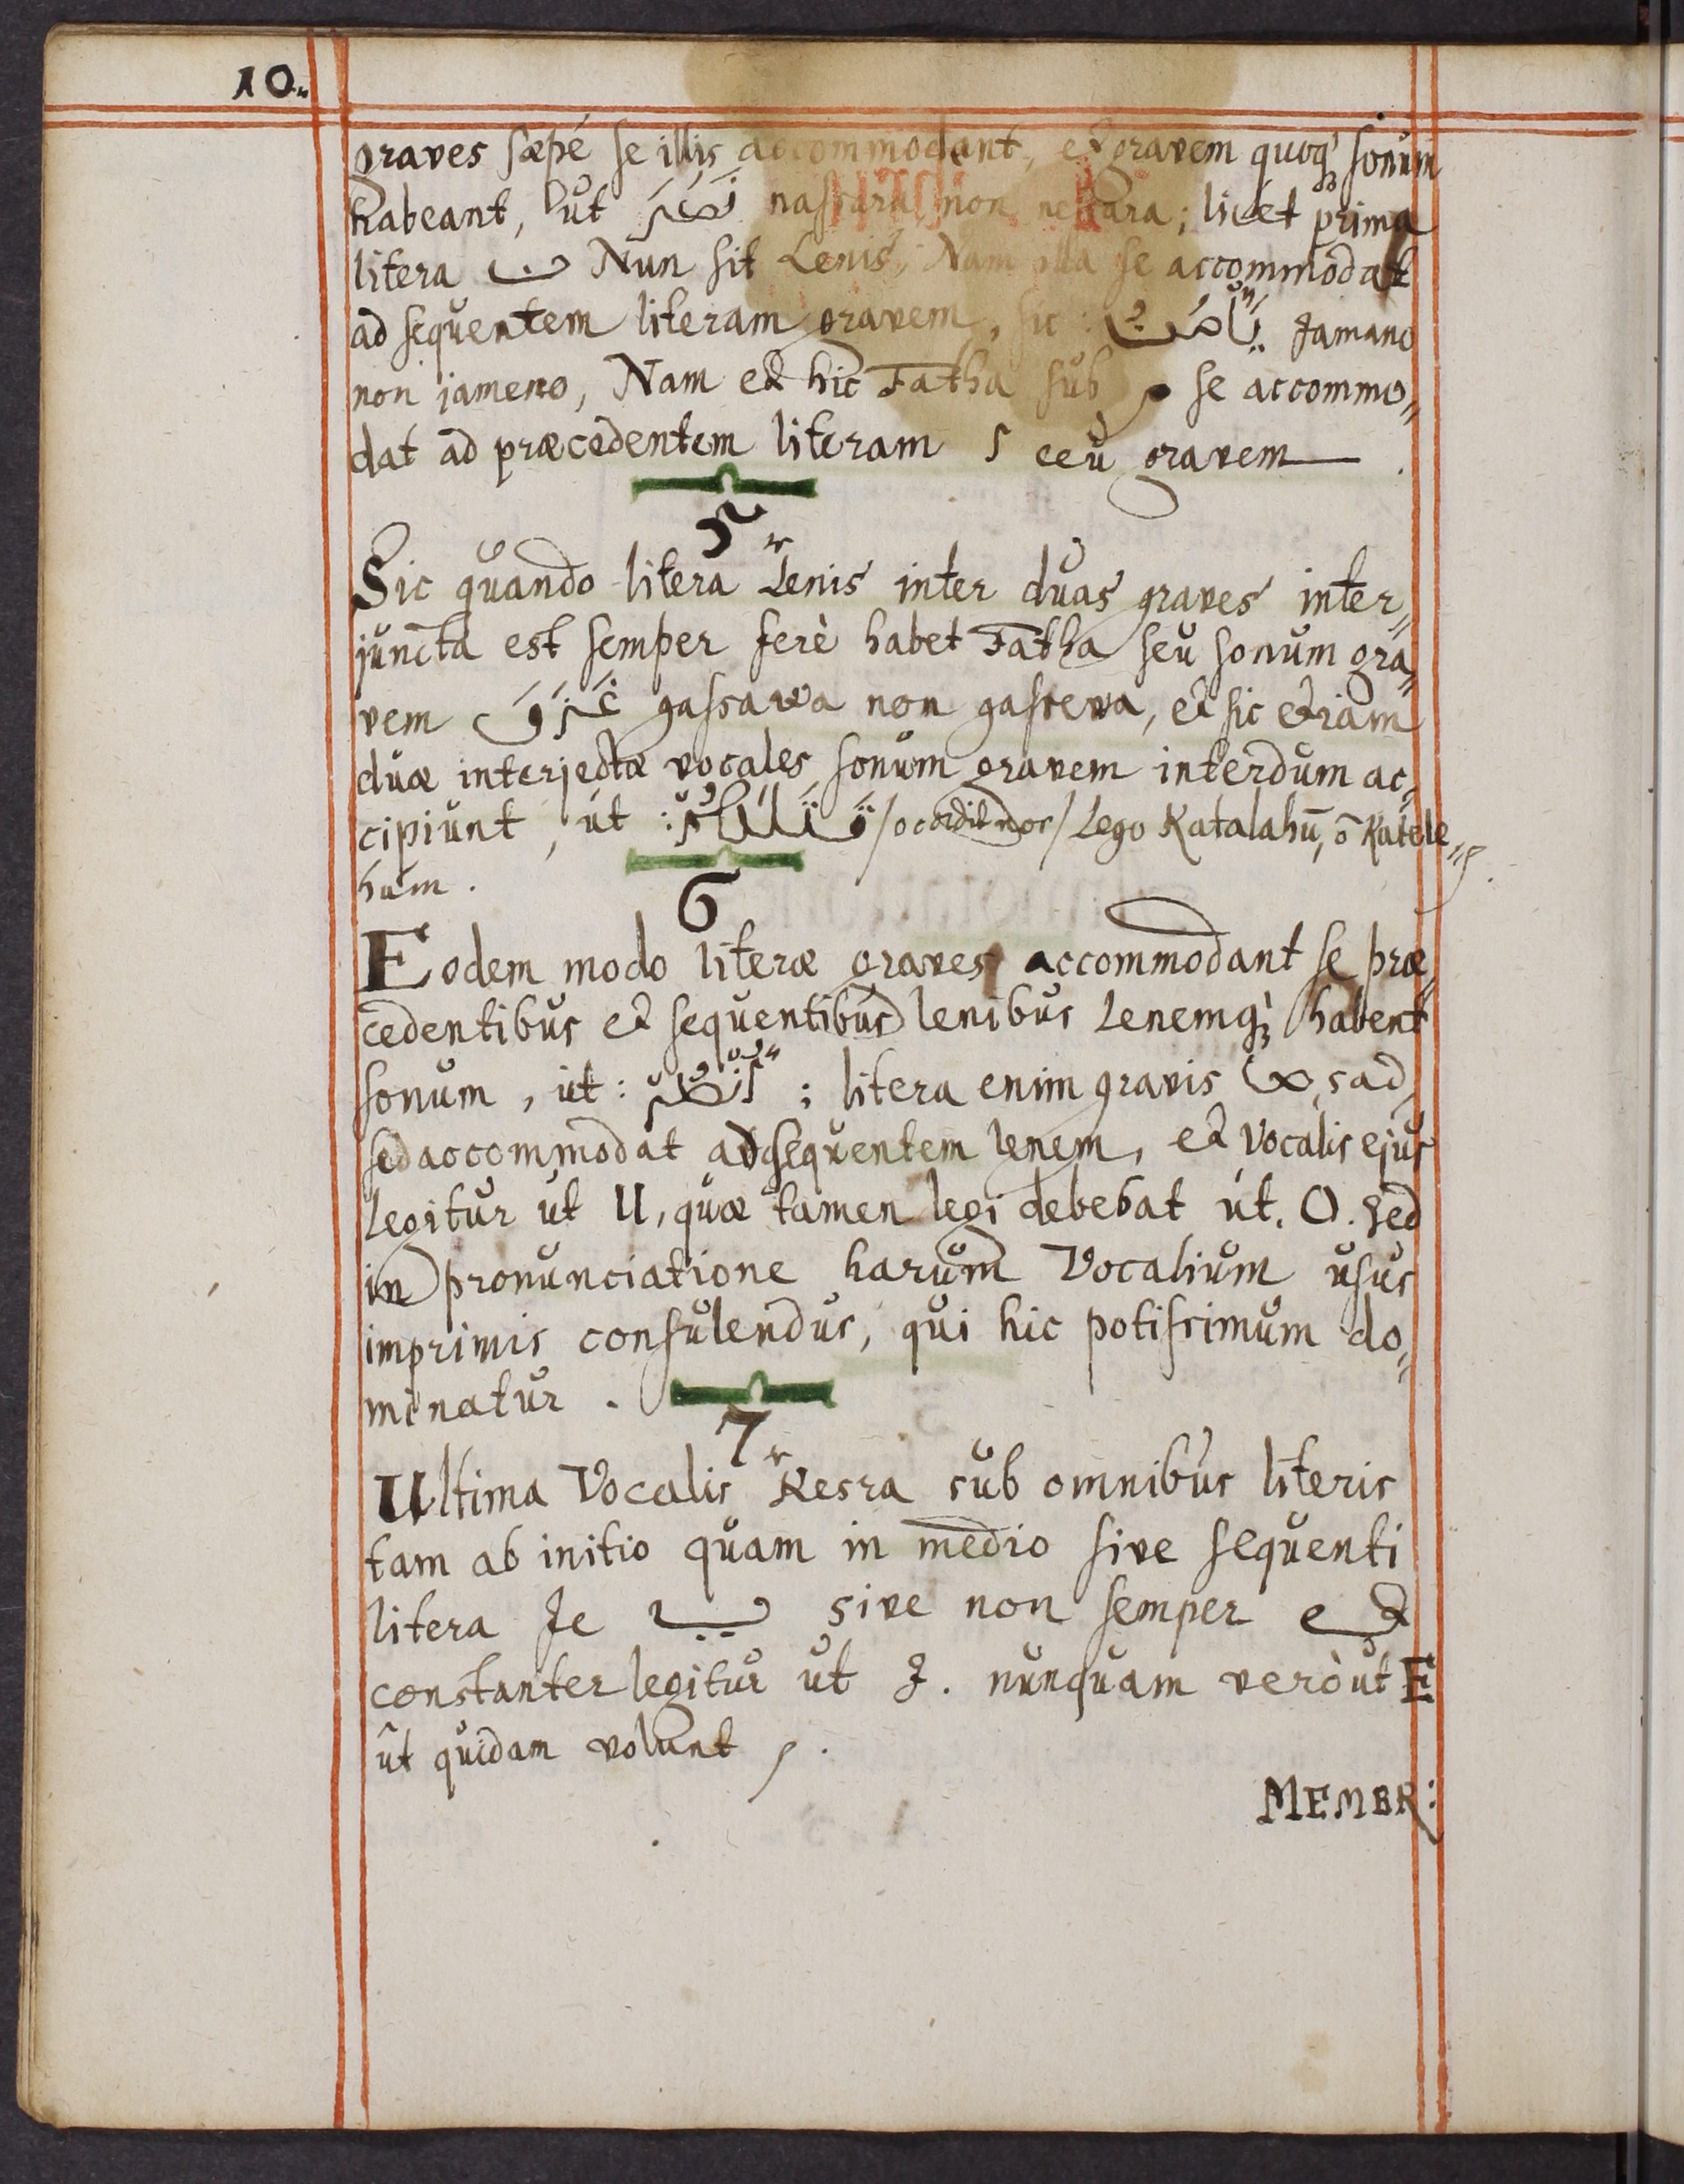 10.
graves sæpé se illis accommodant, et gravem quoq; sonum
habeant, ut نَصَرَ nassara non nessara; licet prima
litera ن Nun sit Lenis, Nam illa se accommodat
ad sequentem literam gravem, sic: Jamano
non jameno, Nam et hic Fatha sub م se accommo„
dat ad præcedentem literam seu gravem
5
Sic quando litera Lenis inter duas graves inter„
juncta est semper ferè habet Fatha seu sonum gra„
vem gassawa non gassewa, et sic etiam
duæ interjectæ vocales sonum gravem interdum ac„
cipiunt, ut: /occidit nos/ Lego Katalahū, ō Katele„
hum.
6
Eodem modo literæ graves accommodant se præ„
cedentibus et sequentibus lenibus Lenemq; habent
sonum, ut: ; litera enim gravis ص sad
sed accommodat ad sequentem lenem, et Vocalis ejus
Legitur ut U, quæ tamen legi debebat ut. O. sed
in pronunciatione harum Vocalium usus
imprimis consulendus, qui hic potissimum do„
minatur.
7
Ultima Vocalis Kesra sub omnibus literis
tam ab initio quam in medio sive sequenti
litera Je ي sive non semper et
constanter legitur ut J. nunquam verò ut E
ut quidam volunt.
MEMBR: